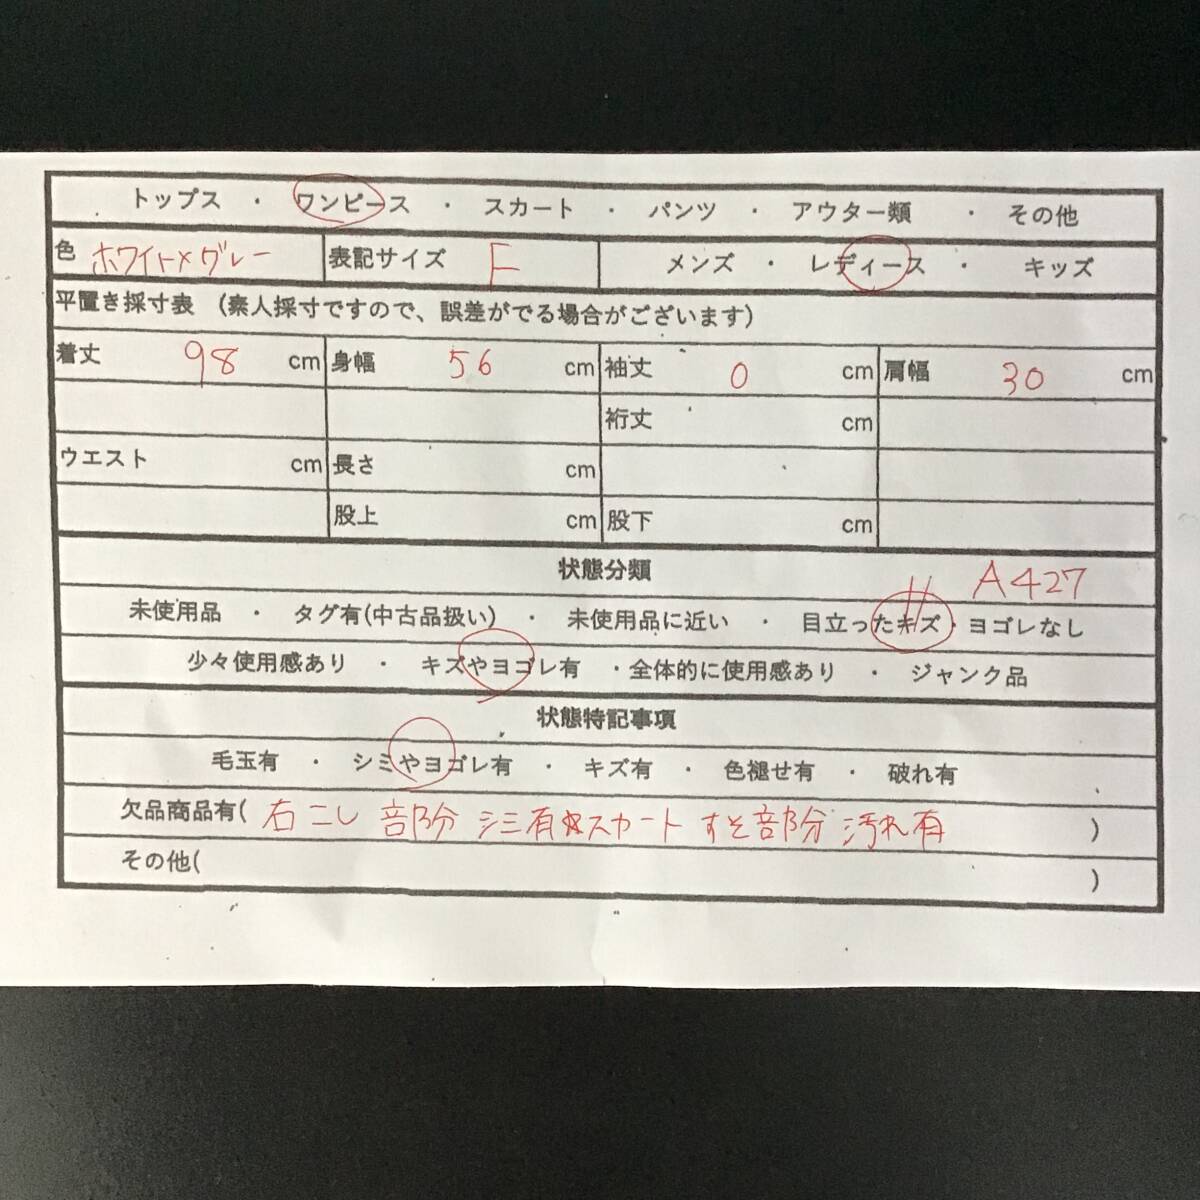 トップス ・ ワンピース ・ スカート ・ パンツ ・ アウター類 ・ その他
色 ホワイト×グレー 表記サイズ F メンズ ・ レディース ・ キッズ
平置き採寸表 (素人採寸ですので、誤差がでる場合がございます)
着丈 98 cm 身幅 56 cm 袖丈 0 cm 肩幅 30 cm
裄丈 cm
ウエスト cm 長さ cm
股上 cm 股下 cm
状態分類 A427
未使用品 ・ タグ有(中古品扱い) ・ 未使用品に近い ・ 目立ったキズ・ヨゴレなし
少々使用感あり ・ キズやヨゴレ有 ・全体的に使用感あり ・ ジャンク品
状態特記事項
毛玉有 ・ シミやヨゴレ有 ・ キズ有 ・ 色褪せ有 ・ 破れ有
欠品商品有( 右こし 部分 シミ有 スカート すそ部分 汚れ有 )
その他( )